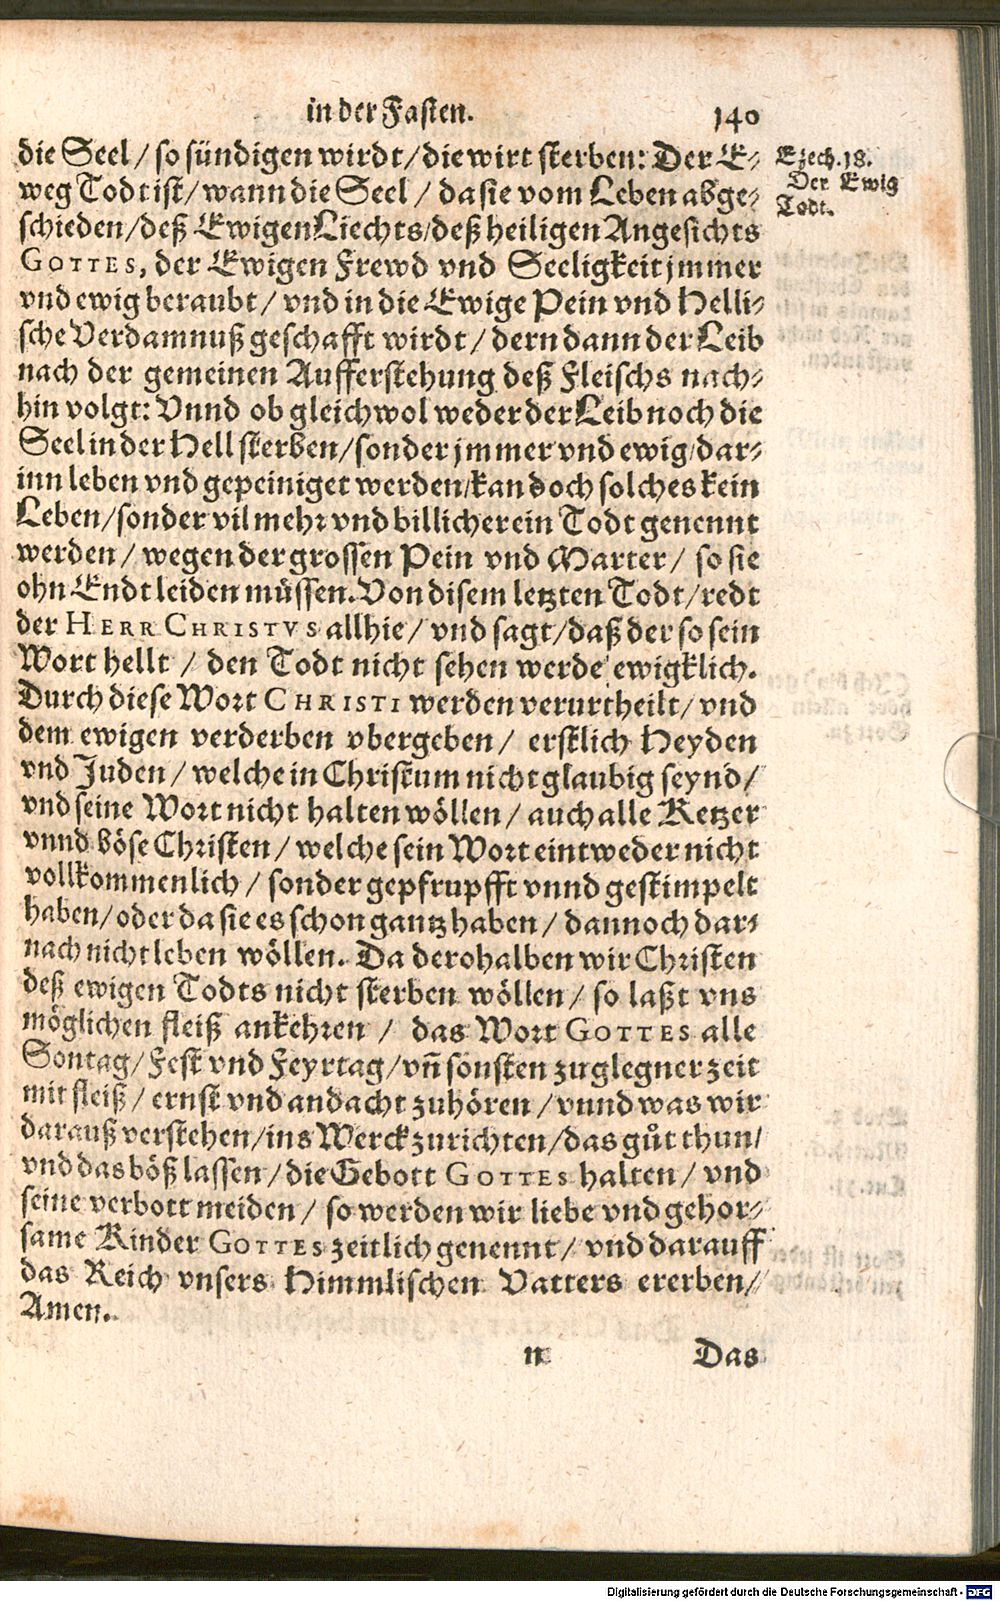 in der Fasten. 140
die Seel / so sündigen wirdt / die wirt sterben: Der E⸗
weg Todt ist / wann die Seel / da sie vom Leben abge⸗
schieden / deß Ewigen Liechts / deß heiligen Angesichts
GOTTES, der Ewigen Frewd vnd Seeligkeit jmmer
vnd ewig beraubt / vnd in die Ewige Pein vnd Helli⸗
sche Verdamnuß geschafft wirdt / dern dann der Leib
nach der gemeinen Aufferstehung deß Fleischs nach⸗
hin volgt: Vnnd ob gleichwol weder der Leib noch die
Seel in der Hell sterben / sonder jmmer vnd ewig / dar⸗
inn leben vnd gepeiniget werden / kan doch solches kein
Leben / sonder vil mehr vnd billicher ein Todt genennt
werden / wegen der grossen Pein vnd Marter / so sie
ohn Endt leiden müssen. Von disem letzten Todt / redt
der HERR CHRISTVS allhie / vnd sagt / daß der so sein
Wort hellt / den Todt nicht sehen werde ewigklich.
Durch diese Wort CHRISTI werden verurtheilt / vnd
dem ewigen verderben vbergeben / erstlich Heyden
vnd Juden / welche in Christum nicht glaubig seynd /
vnd seine Wort nicht halten wöllen / auch alle Ketzer
vnnd böse Christen / welche sein Wort eintweder nicht
vollkommenlich / sonder gepfrupfft vnnd gestimpelt
haben / oder da sie es schon gantz haben / dannoch dar⸗
nach nicht leben wöllen. Da derohalben wir Christen
deß ewigen Todts nicht sterben wöllen / so laßt vns
möglichen fleiß ankehren / das Wort GOTTES alle
Sontag / Fest vnd Feyrtag / vñ sonsten zu glegner zeit
mit fleiß / ernst vnd andacht zuhören / vnnd was wir
darauß verstehen / ins Werck zurichten / das gůt thun /
vnd das böß lassen / die Gebott GOTTES halten / vnd
seine verbott meiden / so werden wir liebe vnd gehor⸗
same Kinder GOTTES zeitlich genennt / vnd darauff
das Reich vnsers Himmlischen Vatters ererben /
Amen.
n Das
Ezech. 18.
Der Ewig
Todt.
Digitalisierung gefördert durch die Deutsche Forschungsgemeinschaft - DFG